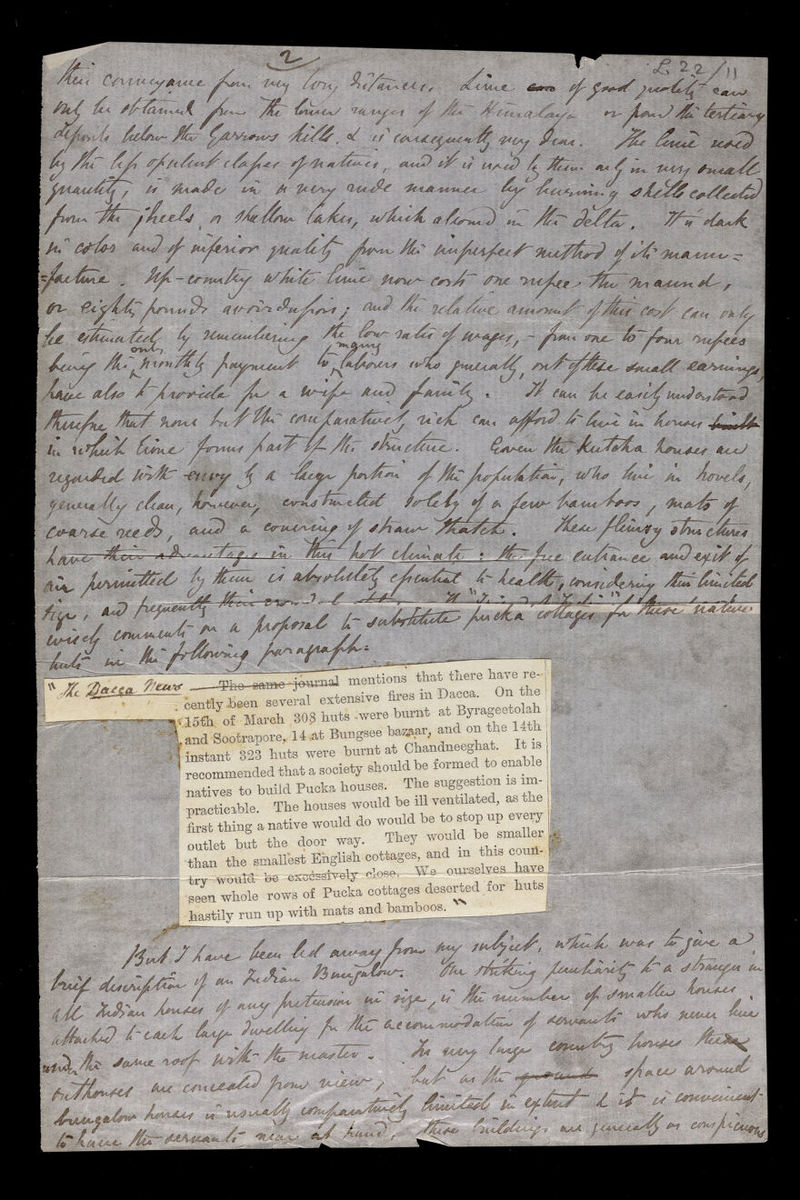 2
L. 22/11
their conveyance from very long distances. Lime of good quality can
only be obtained from the lower ranges of the Himalaya or from the tertiary
deposits below the Garrows hills. & is consequently very dear. The lime used
by the less opulent classes of natives, and it is used by them only in very small
quantity, is made in a very rude manner by burning shells collected
from the jheels, or shallow lakes, which abound in the delta. It is dark
in color and of inferior quality from the imperfect method of its manu=
=facture. Up-country white lime now costs one rupee the maund,
or eighty pounds avoirdupois; and the relative amount of this cost can only
be estimated by remembering the low rates of wages, - from one to four rupees
being the only monthly payment to many labours who generally, out of these small earnings,
have also to provide for a wife and family. It can be easily understood
therefore that none but the comparatively rich can afford to live in houses built
in which lime forms part of the structure. Even the kutcha houses are
regarded with envy by a large portion of the population, who live in hovels,
generally clean, however, constructed solely of a few bamboos, mats of
coarse reeds, and a covering of straw thatch. These flimsy structures
have their advantages in this hot climate: the free entrance and exit of
air permitted by them is absolutely essential to health, considering their limited
size, and frequently their The
wisely comments on a proposal to substitute pucka cottages for these native
huts in the following paragraph:
"The Dacca News The same journal mentions that there have re-
cently been several extensive fires in Dacca. On the
15th of March 308 huts were burnt at Byrageetolah
and Sootrapore, 14 at Bungsee bazaar, and on the 14th
instant 323 huts were burnt at Chandneeghat. It is
recommended that a society should be formed to enable
natives to build Pucka houses. The suggestion is im-
practicable. The houses would be ill ventilated, as the
first thing a native would do would be to stop up every
outlet but the door way. They would be smaller
than the smallest English cottages, and in this coun-
try would be excessively close. We ourselves have
seen whole rows of Pucka cottages deserted for huts
hastily run up with mats and bamboos. "
But I have been led away from my subject, which was to give a
brief description of an Indian Bungalow. One striking peculiarity to a stranger in
all Indian houses of any pretension in size, is the number of smaller houses
attached to each large dwelling for the accommodation of servants who never live
under the same roof with the master. In very large country houses these
outhouses are concealed from view, but as the ground space around
bungalow houses is usually comparatively limited in extent & it is convenient
to have the servants near at hand, these buildings are generally as conspicuous